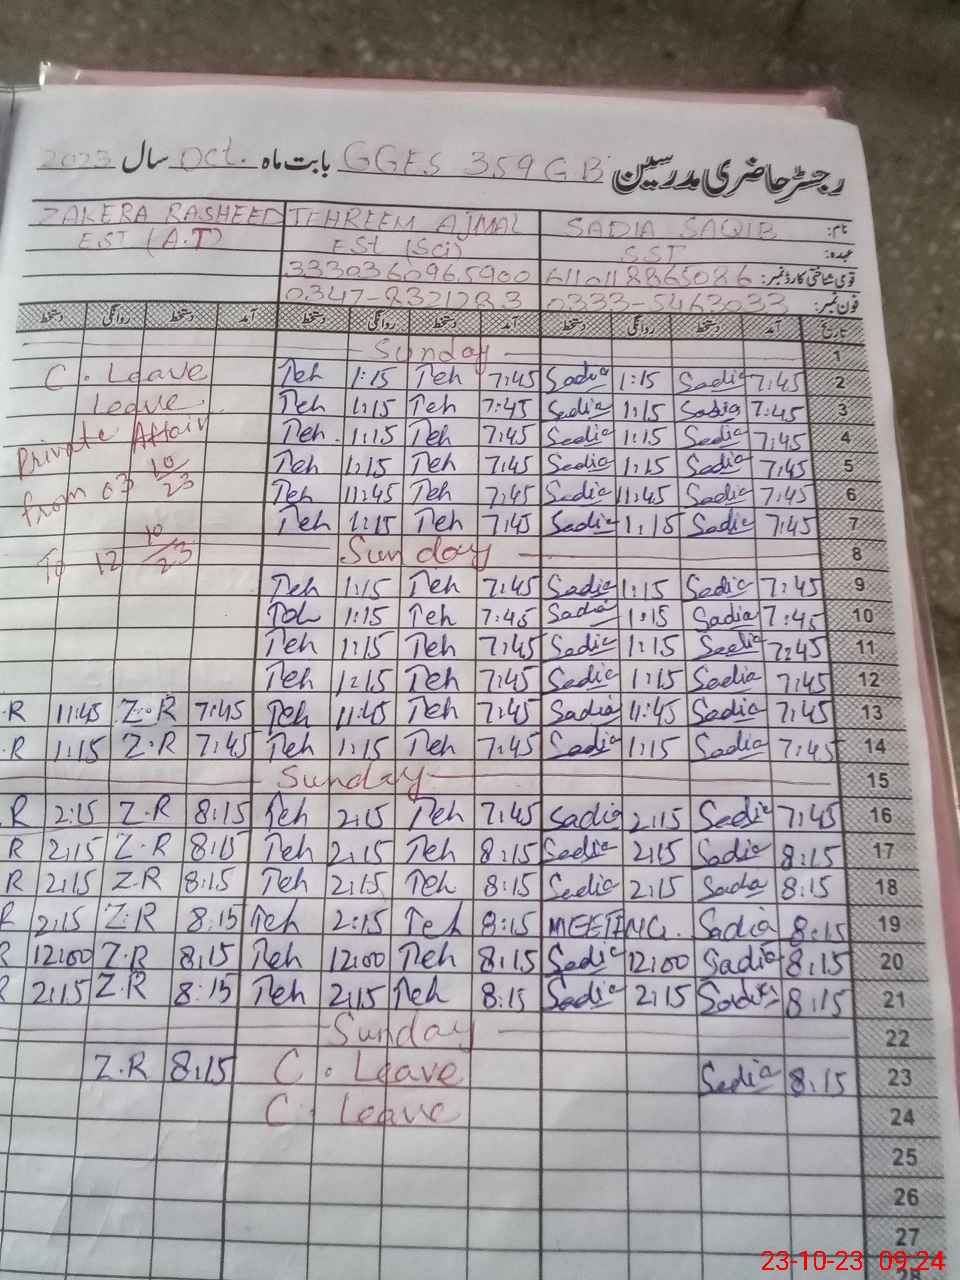 رجسٹر حاضری مدرسین GGES 359 GB بابت ماہ Oct. سال 2023
نام: SADIA SAQIB TEHREEM AJMAL ZAKERA RASHEED
عہدہ: SST EST (Sci) EST (A.T)
قومی شناختی کارڈ نمبر: 6110118865086 3330360965900
فون نمبر: 0333-5463033 0347-8321283
تاریخ آمد دستخط روانگی دستخط آمد دستخط روانگی دستخط آمد دستخط روانگی دستخط
1 Sunday
2 7:45 Sadia 1:15 Sadia 7:45 Teh 1:15 Teh C. Leave
3 7:45 Sadia 1:15 Sadia 7:45 Teh 1:15 Teh Leave
4 7:45 Sadia 1:15 Sadia 7:45 Teh 1:15 Teh. Private Affair
5 7:45 Sadia 1:15 Sadia 7:45 Teh 1:15 Teh
6 7:45 Sadia 11:45 Sadia 7:45 Teh 11:45 Teh from 03 10/23
7 7:45 Sadia 1:15 Sadia 7:45 Teh 1:15 Teh
8 Sunday To 12 10/23
9 7:45 Sadia 1:15 Sadia 7:45 Teh 1:15 Teh
10 7:45 Sadia 1:15 Sadia 7:45 Teh 1:15 Teh
11 7:45 Sadia 1:15 Sadia 7:45 Teh 1:15 Teh
12 7:45 Sadia 1:15 Sadia 7:45 Teh 1:15 Teh
13 7:45 Sadia 11:45 Sadia 7:45 Teh 11:45 Teh 7:45 Z.R 11:45 .R
14 7:45 Sadia 1:15 Sadia 7:45 Teh 1:15 Teh 7:45 Z.R 1:15 .R
15 Sunday
16 7:45 Sadia 2:15 Sadia 7:45 Teh 2:15 Teh 8:15 Z.R 2:15 .R
17 8:15 Sadia 2:15 Sadia 8:15 Teh 2:15 Teh 8:15 Z.R 2:15 R
18 8:15 Sada 2:15 Sadia 8:15 Teh 2:15 Teh 8:15 Z.R 2:15 R
19 8:15 Sadia MEETING. 8:15 Teh 2:15 Teh 8:15 Z.R 2:15 R
20 8:15 Sadia 12:00 Sadia 8:15 Teh 12:00 Teh 8:15 Z.R 12:00 R
21 8:15 Sadia 2:15 Sadia 8:15 Teh 2:15 Teh 8:15 Z.R 2:15 R
22 Sunday
23 8:15 Sadia C. Leave 8:15 Z.R
24 C. Leave
25
26
27
28
23-10-23 09:24